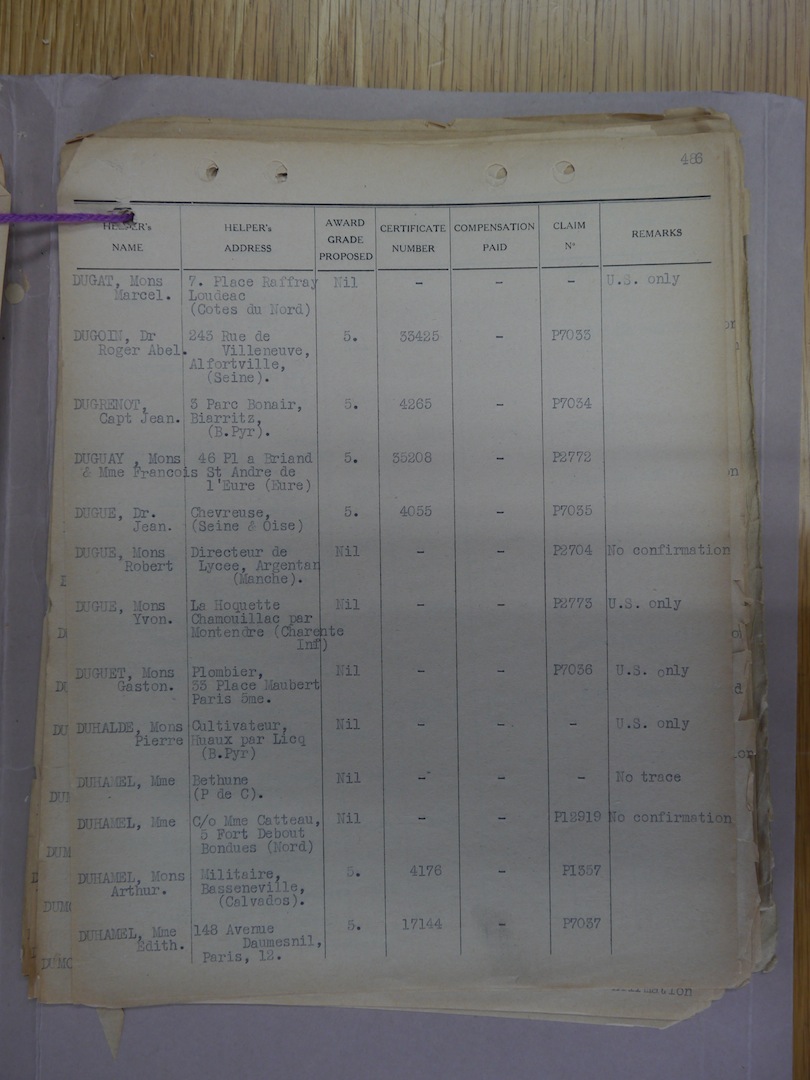 486
HELPER's NAME | HELPER's ADDRESS | AWARD GRADE PROPOSED | CERTIFICATE NUMBER | COMPENSATION PAID | CLAIM Nº | REMARKS
DUGAT, Mons 7. Place Raffray Nil - - - U.S. only
Marcel. Loudeac
(Cotes du Nord)
DUGOIN, Dr 243 Rue de 5. 33425 - P7033
Roger Abel. Villeneuve,
Alfortville,
(Seine).
DUGRENOT, 3 Parc Bonair, 5. 4265 - P7034
Capt Jean. Biarritz,
(B.Pyr).
DUGUAY , Mons 46 Pl a Briand 5. 35208 - P2772
& Mme Francois St Andre de
l'Eure (Eure)
DUGUE, Dr. Chevreuse, 5. 4055 - P7035
Jean. (Seine & Oise)
DUGUE, Mons Directeur de Nil - - P2704 No confirmation
Robert Lycee, Argentan
(Manche).
DUGUE, Mons La Hoquette Nil - - P2773 U.S. only
Yvon. Chamouillac par
Montendre (Charente
Inf)
DUGUET, Mons Plombier, Nil - - P7036 U.S. only
Gaston. 33 Place Maubert
Paris 5me.
DUHALDE, Mons Cultivateur, Nil - - - U.S. only
Pierre Huaux par Licq
(B.Pyr)
DUHAMEL, Mme Bethune Nil - - - No trace
(P de C).
DUHAMEL, Mme C/o Mme Catteau, Nil - - P12919 No confirmation
5 Fort Debout
Bondues (Nord)
DUHAMEL, Mons Militaire, 5. 4176 - P1357
Arthur. Basseneville,
(Calvados).
DUHAMEL, Mme 148 Avenue 5. 17144 - P7037
Edith. Daumesnil,
Paris, 12.